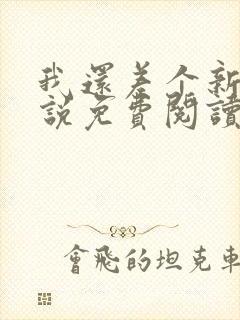 我還差个新
說免費閱讀
會飛的坦克車